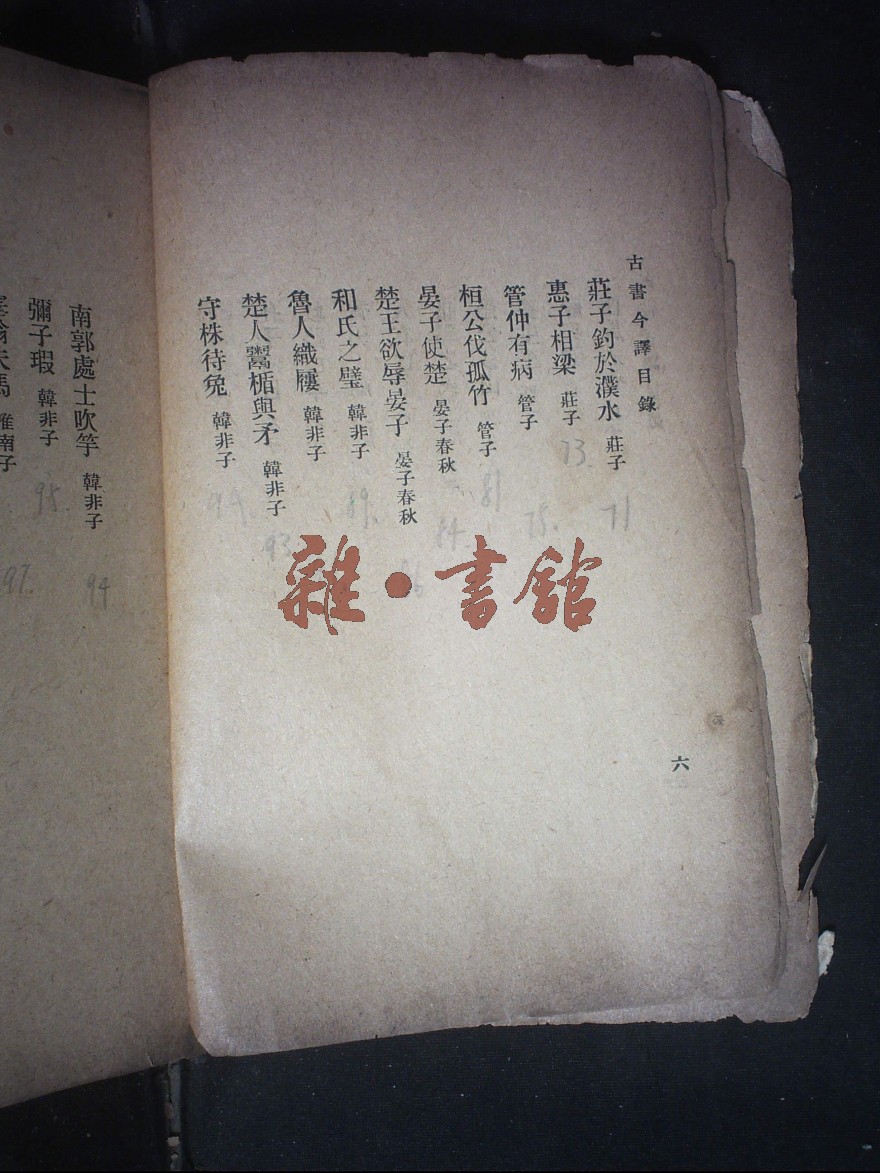 古書今譯目錄
莊子釣於濮水 莊子 71
惠子相梁 莊子 73.
管仲有病 管子 75.
桓公伐孤竹 管子 81
晏子使楚 晏子春秋 84.
楚王欲辱晏子 晏子春秋 86
和氏之璧 韓非子 89.
魯人織屨 韓非子
楚人鬻楯與矛 韓非子 93
守株待兔 韓非子 94
六
南郭處士吹竽 韓非子 94
彌子瑕 韓非子 95.
失馬 淮南子 97.
雜·書館